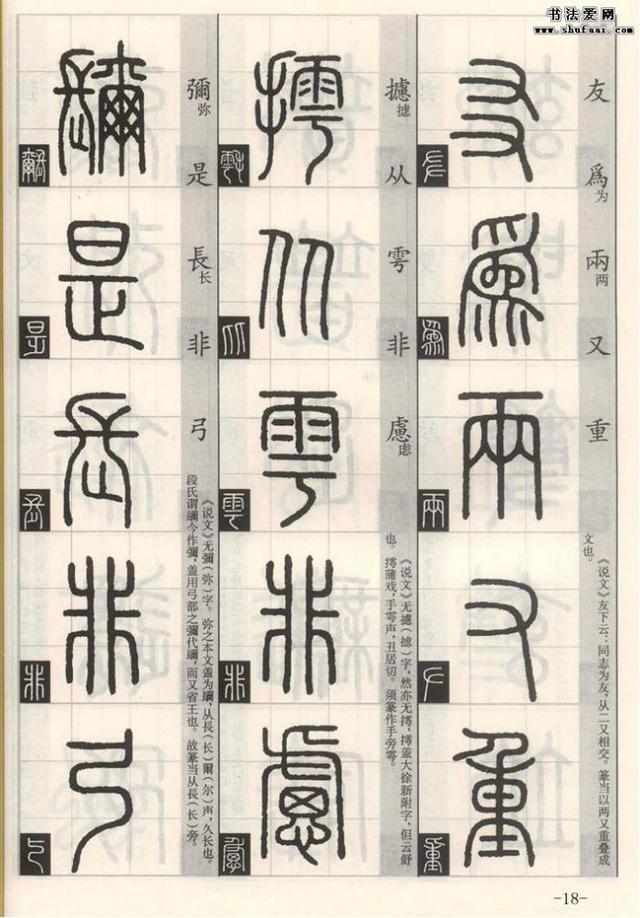 书法爱网
www.shufaai.com
友
爲为
兩两
又
重
《说文》友下云：同志为友，从二又相交。篆当以两又重叠成
文也。
攄摅
从
雩
非
慮虑
《说文》无攄（摅）字，然亦无摴，摴盖大徐新附字，但云舒
也。摴蒲戏，手雩声，丑居切。须篆作手旁雩。
彌弥
是
長长
非
弓
《说文》无彌（弥）字。弥之本文盖为镾，从長（长）爾（尔）声，久长也。
段氏谓镾今作彌，盖用弓部之彌代镾，而又省王也。故篆当从長（长）旁。
-18-